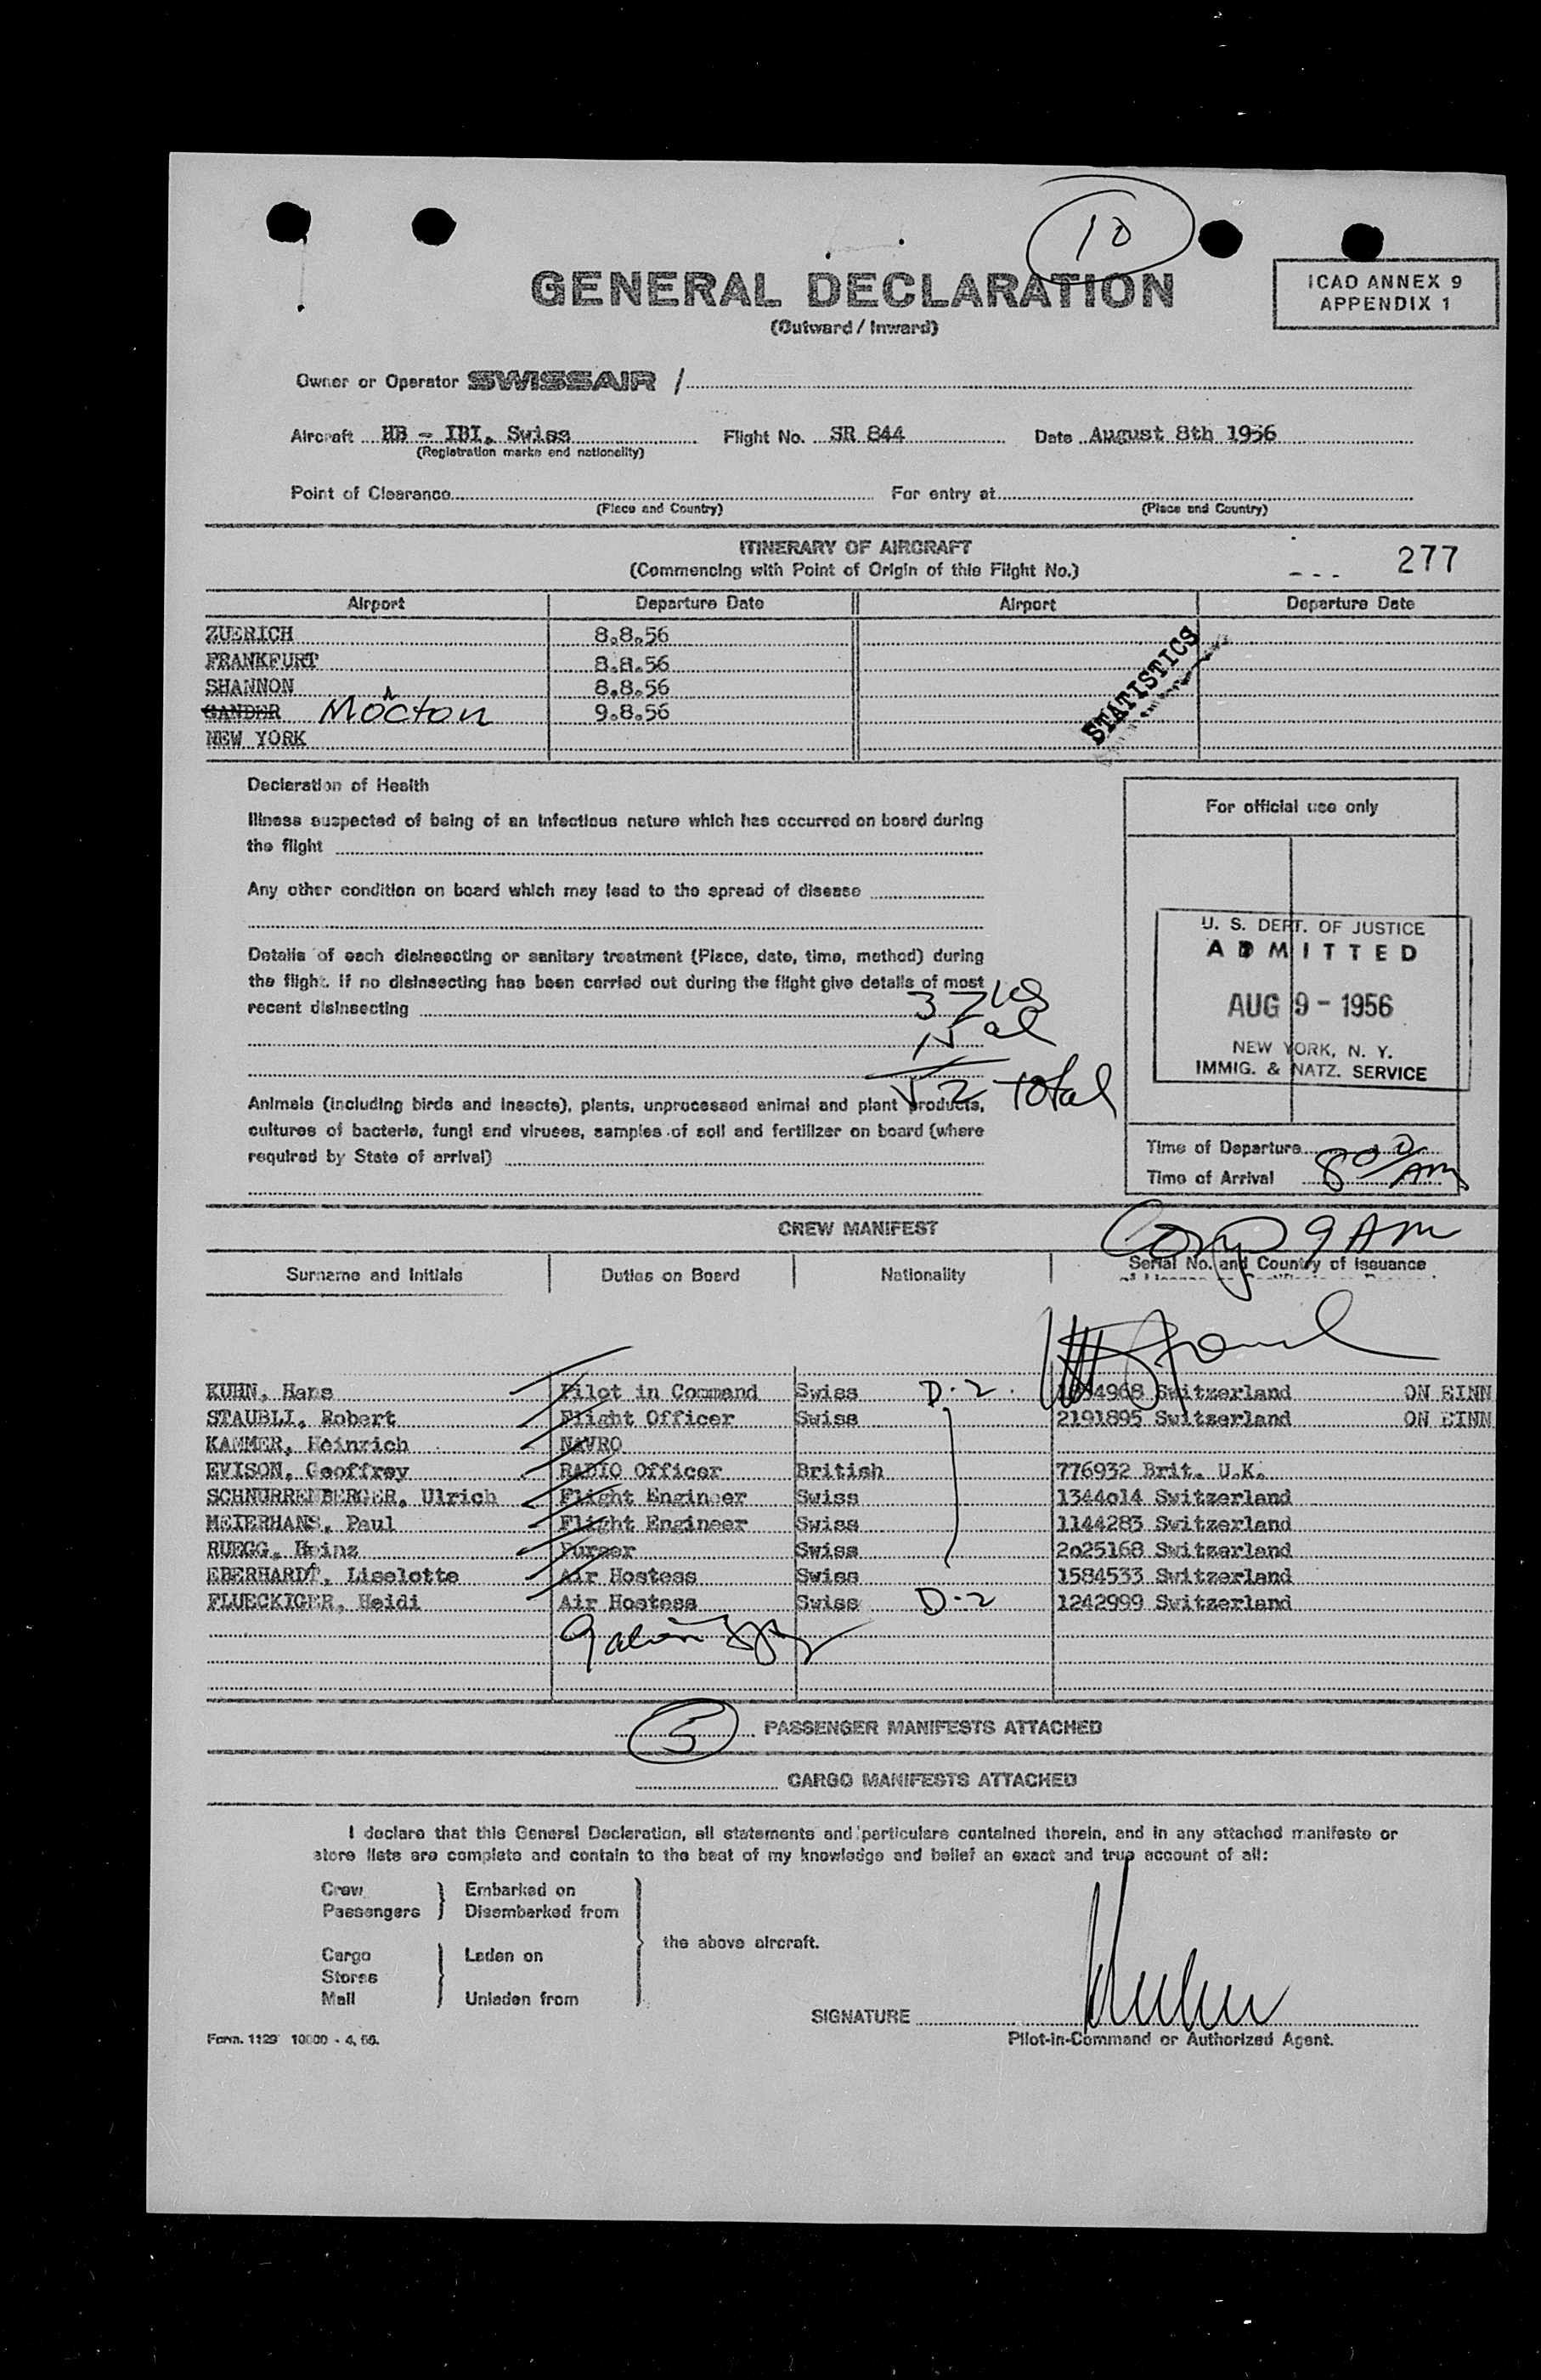 10
GENERAL DECLARATION
(Outward / Inward)
ICAO ANNEX 9
APPENDIX 1
Owner or Operator SWISSAIR /
Aircraft HB - IBI, Swiss Flight No. SR 844 Date August 8th 1956
(Registration marks and nationality)
Point of Clearance For entry at
(Place and Country) (Place and Country)
ITINERARY OF AIRCRAFT
(Commencing with Point of Origin of this Flight No.)
277
Airport Departure Date Airport Departure Date
ZUERICH 8.8.56
FRANKFURT 8.8.56
SHANNON 8.8.56
GANDER Mocton 9.8.56
NEW YORK
STATISTICS
Declaration of Health
Illness suspected of being of an infectious nature which has occurred on board during
the flight
Any other condition on board which may lead to the spread of disease
Details of each disinsecting or sanitary treatment (Place, date, time, method) during
the flight. If no disinsecting has been carried out during the flight give details of most
recent disinsecting
37 us
15 al
52 Total
Animals (including birds and insects), plants, unprocessed animal and plant products,
cultures of bacteria, fungi and viruses, samples of soil and fertilizer on board (where
required by State of arrival)
For official use only
U. S. DEPT. OF JUSTICE
ADMITTED
AUG 9 - 1956
NEW YORK, N. Y.
IMMIG. & NATZ. SERVICE
Time of Departure
Time of Arrival 8 00 AM
CREW MANIFEST
9 AM
Surname and Initials Duties on Board Nationality Serial No. and Country of Issuance
KUHN, Hans Pilot in Command Swiss D-2 Switzerland ON BINN
STAUBLI, Robert Flight Officer Swiss 2191895 Switzerland ON BINN
KAMMER, Heinrich NAVRO
EVISON, Geoffrey RADIO Officer British 776932 Brit. U.K.
SCHNURRENBERGER, Ulrich Flight Engineer Swiss 1344o14 Switzerland
MEIERHANS, Paul Flight Engineer Swiss 1144283 Switzerland
RUEGG, Heinz Purser Swiss 2o25168 Switzerland
EBERHARDT, Liselotte Air Hostess Swiss 1584533 Switzerland
FLUECKIGER, Heidi Air Hostess Swiss D-2 1242999 Switzerland
5 PASSENGER MANIFESTS ATTACHED
CARGO MANIFESTS ATTACHED
I declare that this General Declaration, all statements and particulars contained therein, and in any attached manifests or
store lists are complete and contain to the best of my knowledge and belief an exact and true account of all:
Crew Embarked on
Passengers Disembarked from
the above aircraft.
Cargo Laden on
Stores
Mail Unladen from
SIGNATURE
Pilot-in-Command or Authorized Agent.
Form. 1129 10000 - 4, 56.